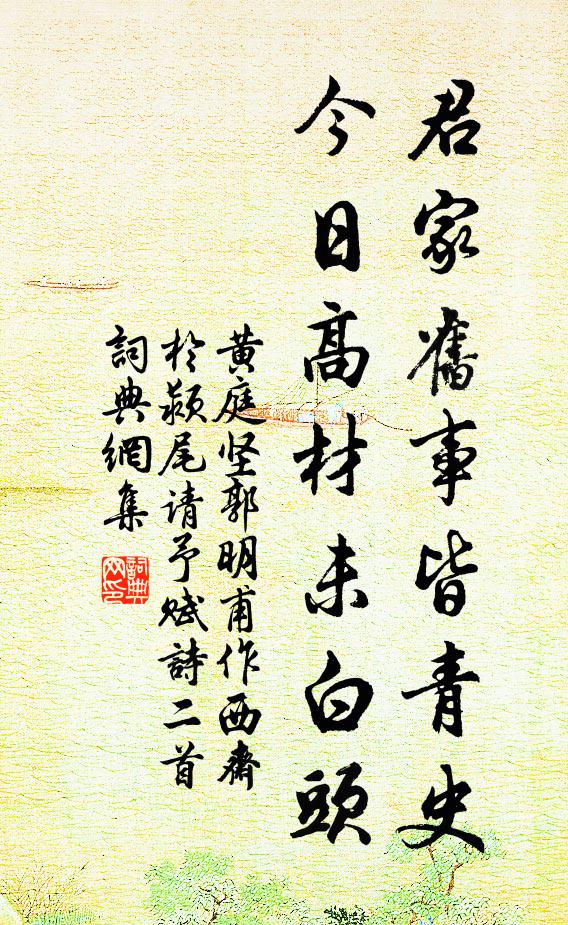 君家舊事皆青史
今日高材未白頭
黄庭坚郭明甫作西齋
於颍尾请予赋詩二首
詞典網集
詞典
网印